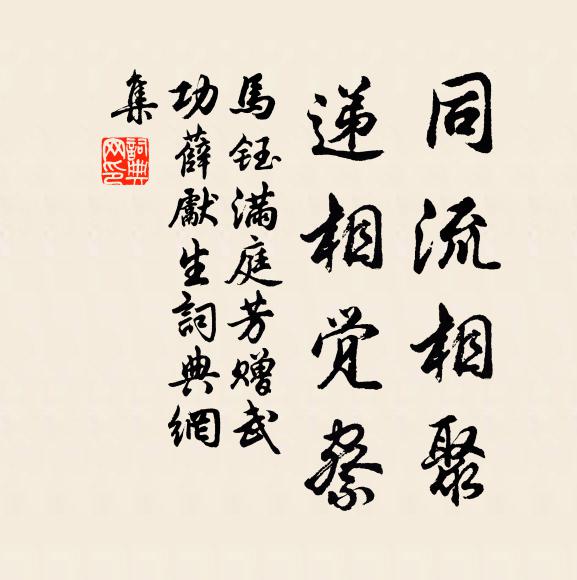 同流相聚
递相觉察
馬鈺滿庭芳赠武
功薛獻生詞典網
集
詞典
网印